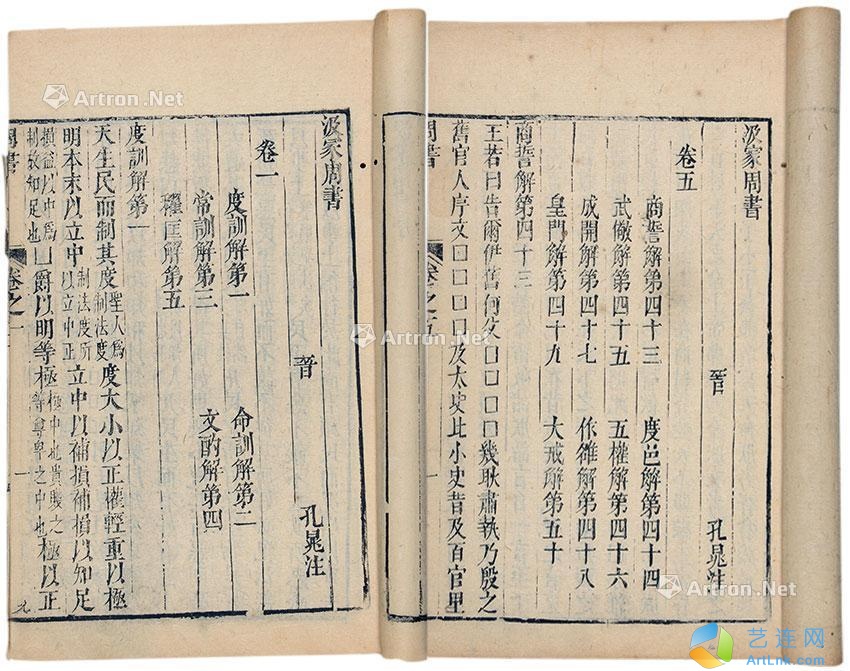 汲冢周書
晉 孔晁注
卷五
商誓解第四十三 度邑解第四十四
武儆解第四十五 五權解第四十六
成開解第四十七 作雒解第四十八
皇門解第四十九 大戒解第五十
商誓解第四十三
王若曰告爾伊舊何父□□□□幾耿肅執乃殷之
舊官人序文□□□□及太史比小史昔及百官里
周書 卷之五 一
汲冢周書
晉 孔晁注
卷一
度訓解第一 命訓解第二
常訓解第三 文酌解第四
糴匡解第五
度訓解第一
天生民而制其度聖人爲制法度度大小以正權輕重以極
明本末以立中制法度所以立中正立中以補損補損以知足
損益以中爲制故知足也□爵以明等極極中也貴賤之等尊卑之中也極以正
周書 卷之一 一
Artron.Net
Artron.Net
Artron.Net
Artron.Net
艺连网
ArtLnk.com